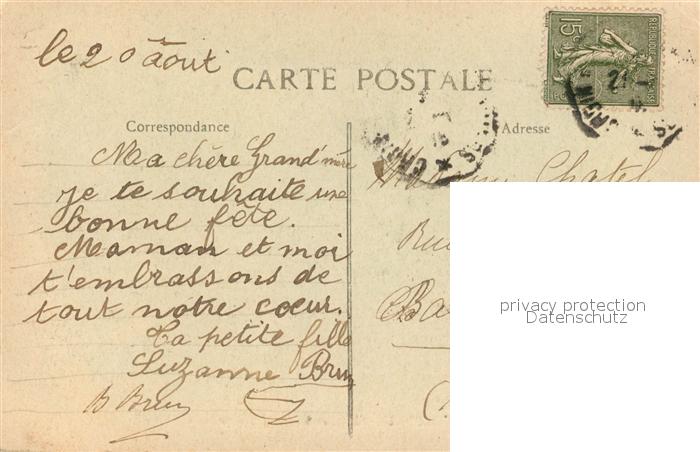 le 20 août
CARTE POSTALE
15c
RÉPUBLIQUE FRANÇAISE
21
Correspondance
Adresse
Ma chère Grand'mère
je te souhaite une
bonne fête.
Maman et moi
t'embrassons de
tout notre coeur.
Ta petite fille
Suzanne Brun
B Brun
Madame Chatel
Rue
Ba
privacy protection
Datenschutz